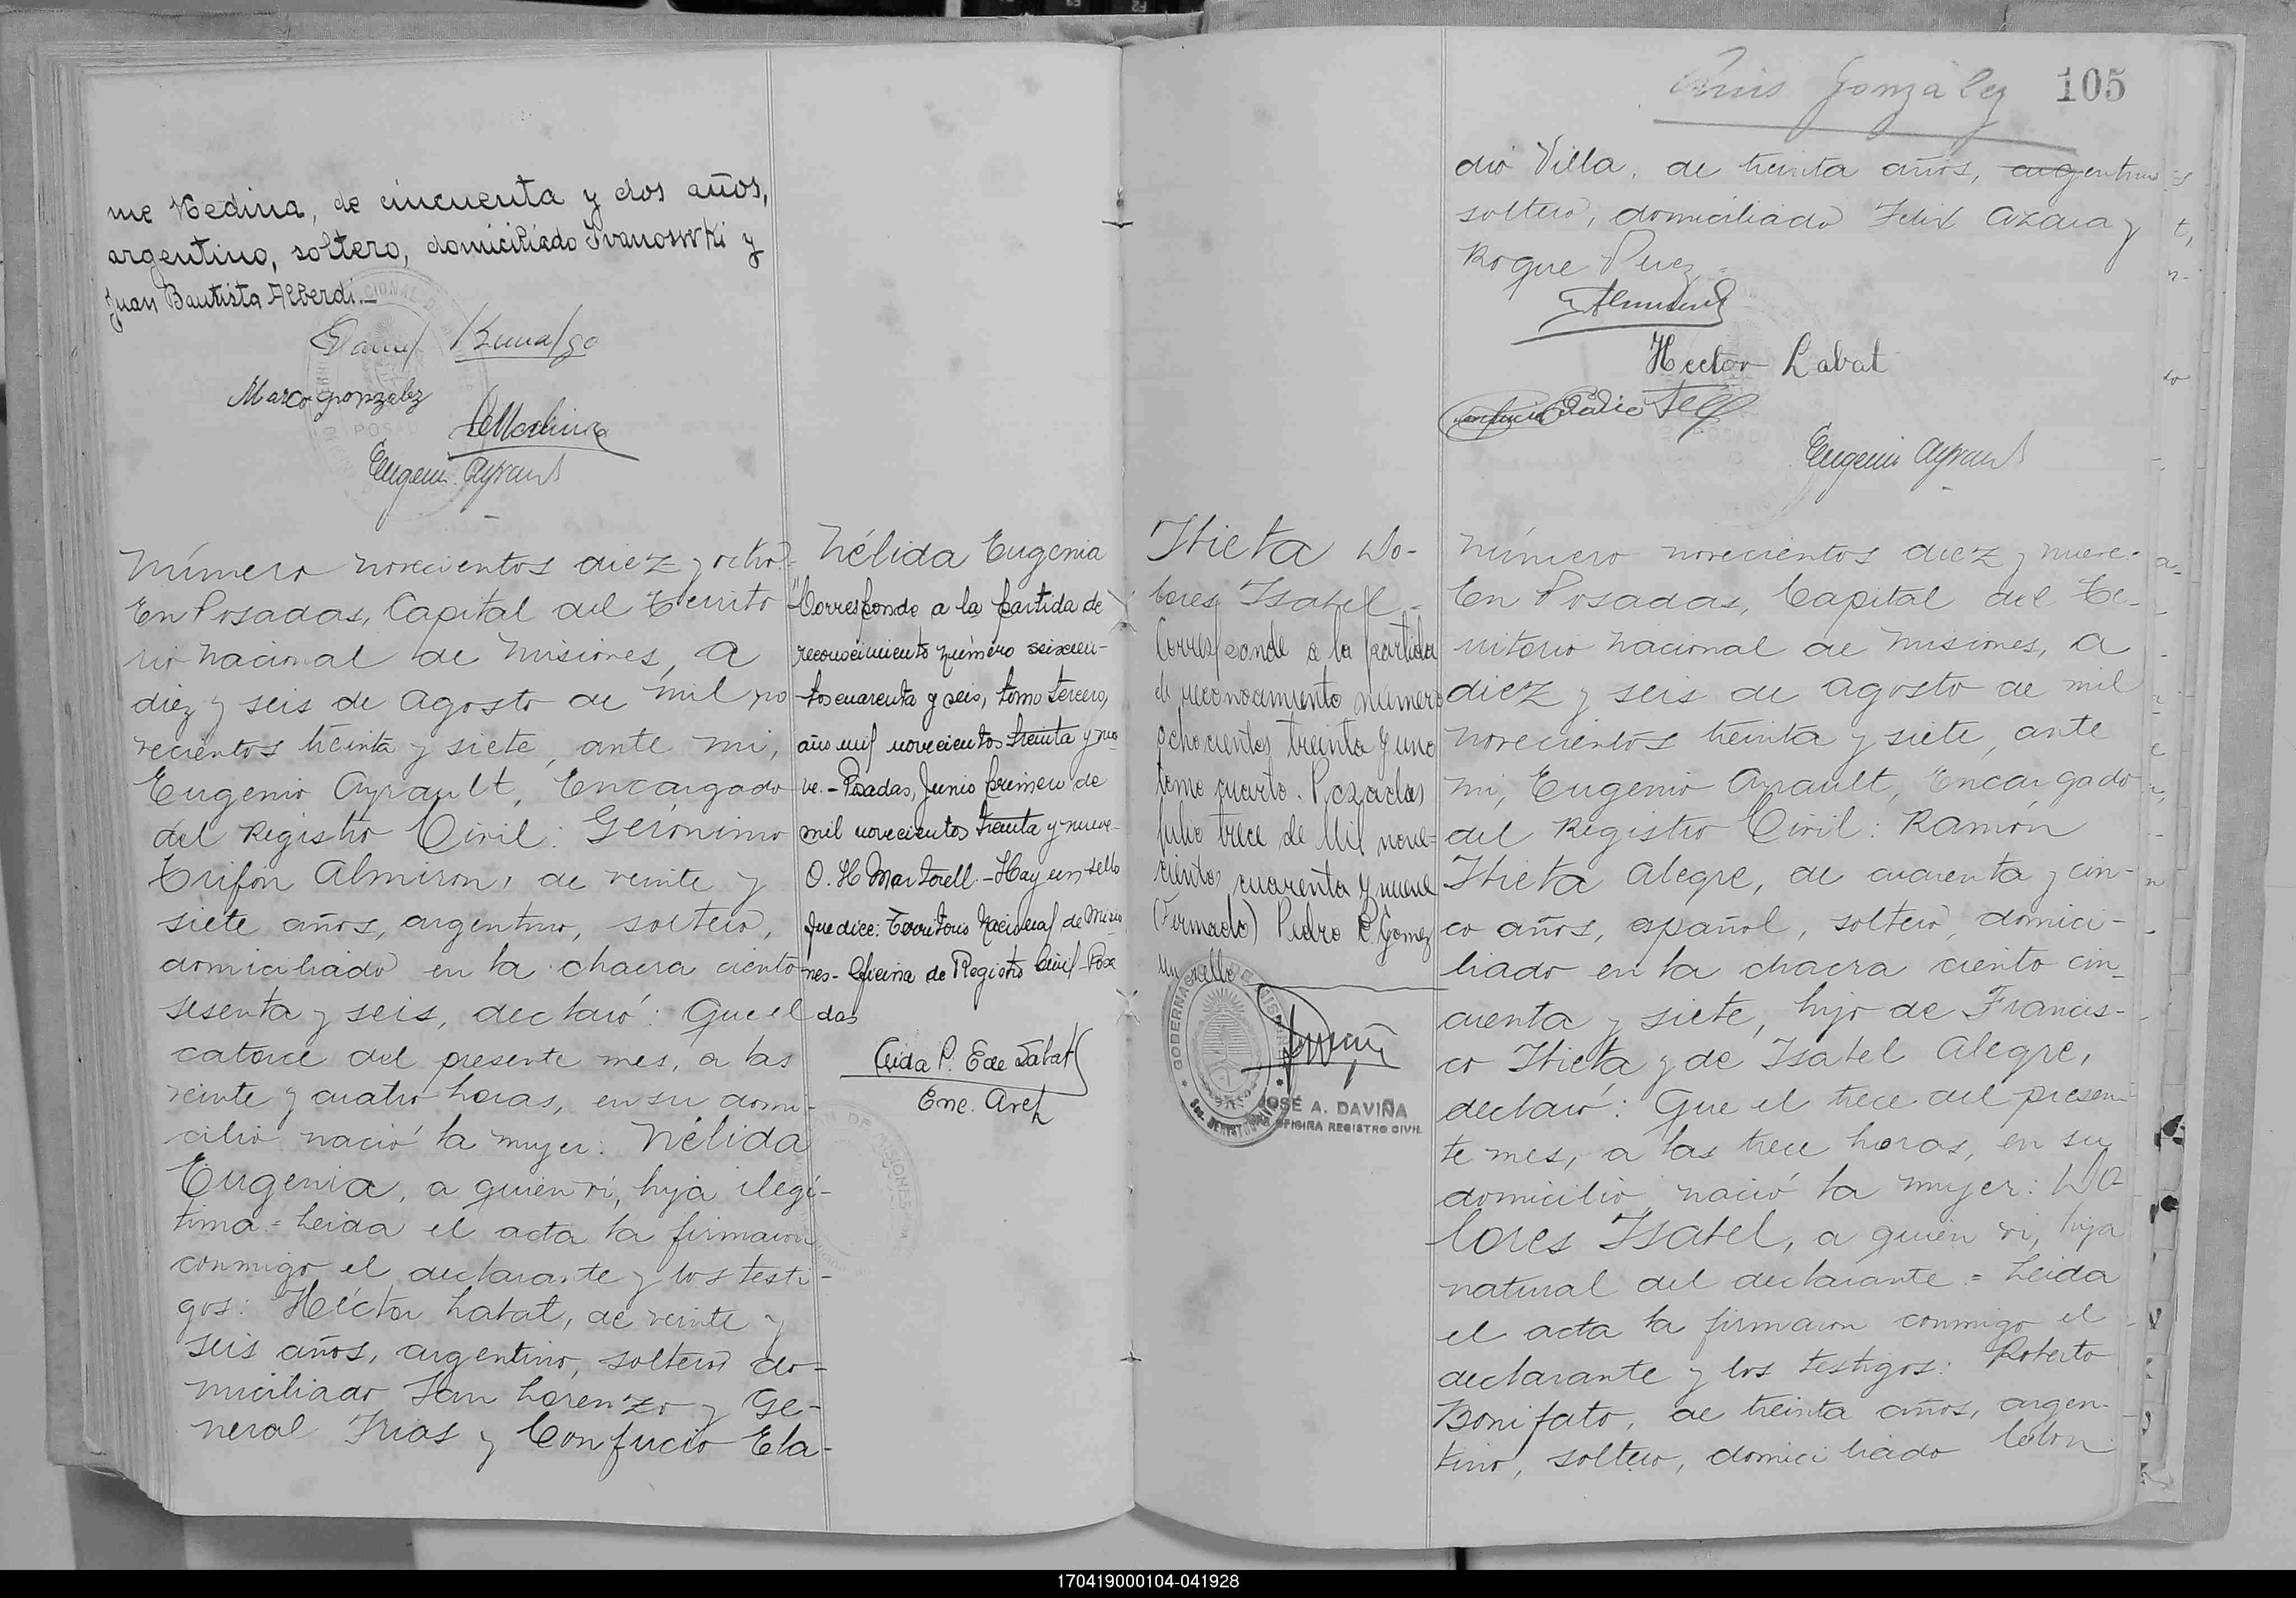 me Medina, de cincuenta y dos años,
argentino, soltero, domiciliado Ivanoswki y
Juan Bautista Alberdi.—
Marcos gonzalez
Eugenio Ayrault
Número novecientos diez y ocho.-
En Posadas, Capital del Territo
rio Nacional de Misiones, a
diez y seis de Agosto de mil no
vecientos treinta y siete, ante mi,
Eugenio Ayrault, Encargado
del Registro Civil: Gerónimo
Trifón Almiron, de veinte y
siete años, argentino, soltero,
domiciliado en la chacra ciento
sesenta y seis, declaró: Que el
catorce del presente mes, a las
veinte y cuatro horas, en su domi-
cilio nació la mujer: Nélida
Eugenia, a quien vi, hija ilegí-
tima = Leida el acta la firmaron
conmigo el declarante y los testi-
gos: Héctor Labat, de veinte y
seis años, argentino, soltero do-
miciliado San Lorenzo y Ge-
neral Frias y Confucio Ela-
Nélida Eugenia
"Corresponde a la partida de
reconocimiento número seiscien-
tos cuarenta y seis, tomo tercero,
año mil novecientos treinta y nue
ve.- Posadas, Junio primero de
mil novecientos treinta y nueve-
O. H Martorell.- Hay un sello
que dice: Territorio Nacional de Misio
nes- Oficina de Registro Civil- Posa
das
Enc. Arch
Itieta Do-
lores Isabel.=
Corresponde a la partida
de reconocimiento número
ochocientos treinta y uno
tomo cuarto. Pozadas
julio trece de Mil nove-
cientos cuarenta y nueve
(Firmado) Pedro R. Gomez
un sello
JOSÉ A. DAVIÑA
OFICINA REGISTRO CIVIL
Luis González 105
dio Villa, de treinta años, argentino
soltero, domiciliado Felix Azara y
Roque Perez =
Hector Labat
Eugenio Ayrault
Número novecientos diez y nueve.-
En Posadas, Capital del Te-
rritorio Nacional de Misiones, a
diez y seis de Agosto de mil
novecientos treinta y siete, ante
mi, Eugenio Ayrault, Encargado
del Registro Civil: Ramón
Itieta Alegre, de cuarenta y cin-
co años, español, soltero, domici-
liado en la chacra ciento cin-
cuenta y siete, hijo de Francis-
co Itieta y de Isabel Alegre,
declaró: Que el trece del presen-
te mes, a las trece horas, en su
domicilio nació la mujer: Do
lores Isabel, a quien vi, hija
natural del declarante = Leida
el acta la firmaron conmigo el
declarante y los testigos: Roberto
Bonifato, de treinta años, argen-
tino, soltero, domiciliado Colon
170419000104-041928